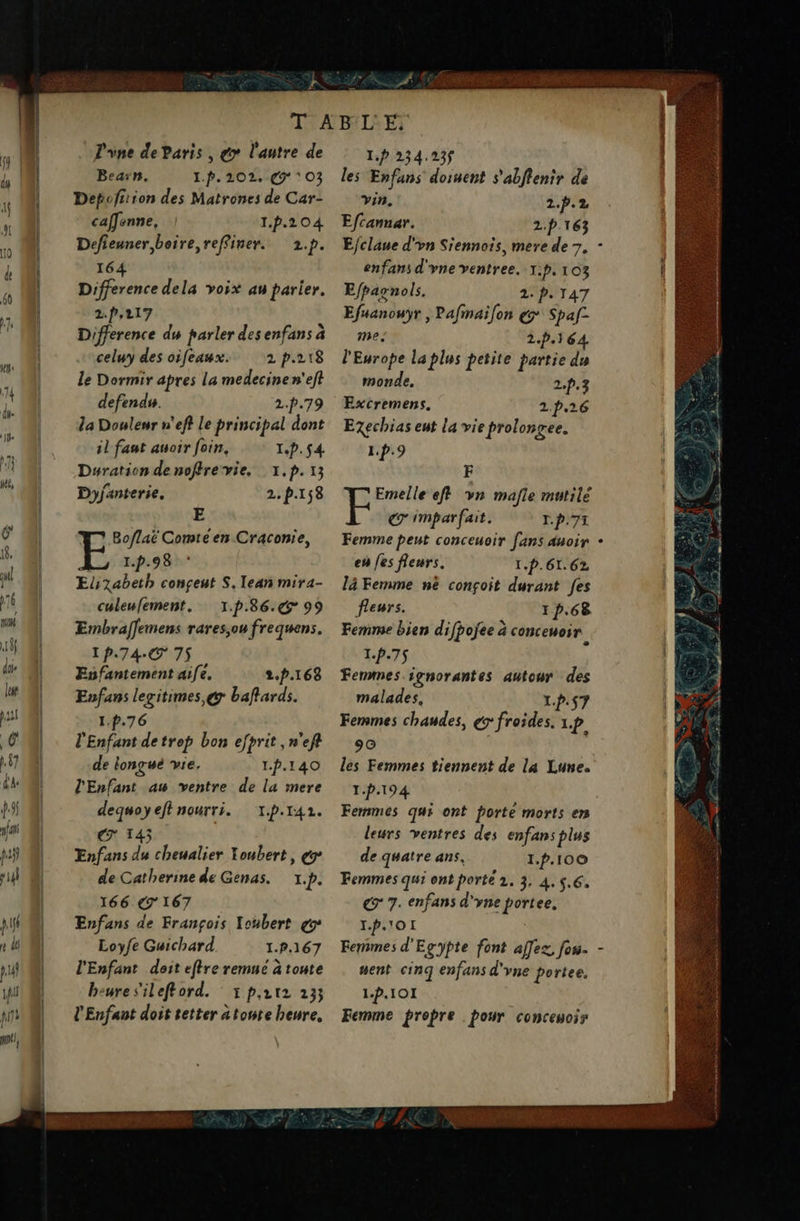 TABLE.
l'vne de Paris, & l'autre de
Bearn. 1.p.202. & 203
Deposition des Matrones de Car-
cassonne, 1.p.204
Desieuner, boire, ressiner. 2.p.
164
Difference de la voix au parler.
2.p.217
Difference du parler des enfans à
celuy des oiseaux. 2 p.218
le Dormir apres la medecine n'est
defendu. 2.p.79
la Douleur n'est le principal dont
il faut auoir soin, 1.p.54
Duration de nostre vie, 1.p.13
Dysanterie, 2.p.158
E
E Boslaë Comté en Craconie,
1.p.98
Elizabeth conçeut S. Iean mira-
culeusement. 1.p.86. & 99
Embrassemens rares, ou frequens.
1 p.74. & 75
Enfantement aisé. 2.p.168
Enfans legitimes, & bastards.
1.p.76
l'Enfant de trop bon esprit, n'est
de longuë vie. 1.p.140
l'Enfant au ventre de la mere
dequoy est nourri. 1.p.142.
& 143
Enfans du cheualier Ioubert, &
de Catherine de Genas. 1.p.
166 & 167
Enfans de François Ioubert &
Loyse Guichard 1.p.167
l'Enfant doit estre remué à toute
heure s'il est ord. 1 p.212 233
l'Enfant doit tetter à toute heure,
1.p 234.235
les Enfans doiuent s'abstenir de
vin, 2.p.2
Escannar. 2.p.163
Esclaue d'vn Siennois, mere de 7.
enfans d'vne ventree. 1.p.103
Espagnols. 2.p.147
Esuanouyr, Pasmaison & Spas-
me. 2.p.164
l'Europe la plus petite partie du
monde. 2.p.3
Excremens, 2.p.26
Ezechias eut la vie prolongee.
1.p.9
F
FEmelle est vn masle mutilé
& imparfait. 1.p.71
Femme peut conceuoir sans auoir
eu ses fleurs. 1.p.61.62
la Femme nè conçoit durant ses
fleurs. 1 p.68
Femme bien disposee à conceuoir
1.p.75
Femmes ignorantes autour des
malades, 1.p.57
Femmes chaudes, & froides. 1.p.
90
les Femmes tiennent de la Lune.
1.p.194
Femmes qui ont porté morts en
leurs ventres des enfans plus
de quatre ans, 1.p.100
Femmes qui ont porté 2. 3. 4. 5.6.
& 7. enfans d'vne portee.
1.p.101
Femmes d'Egypte font assez, sou-
uent cinq enfans d'vne portee.
1.p.101
Femme propre pour conceuoir